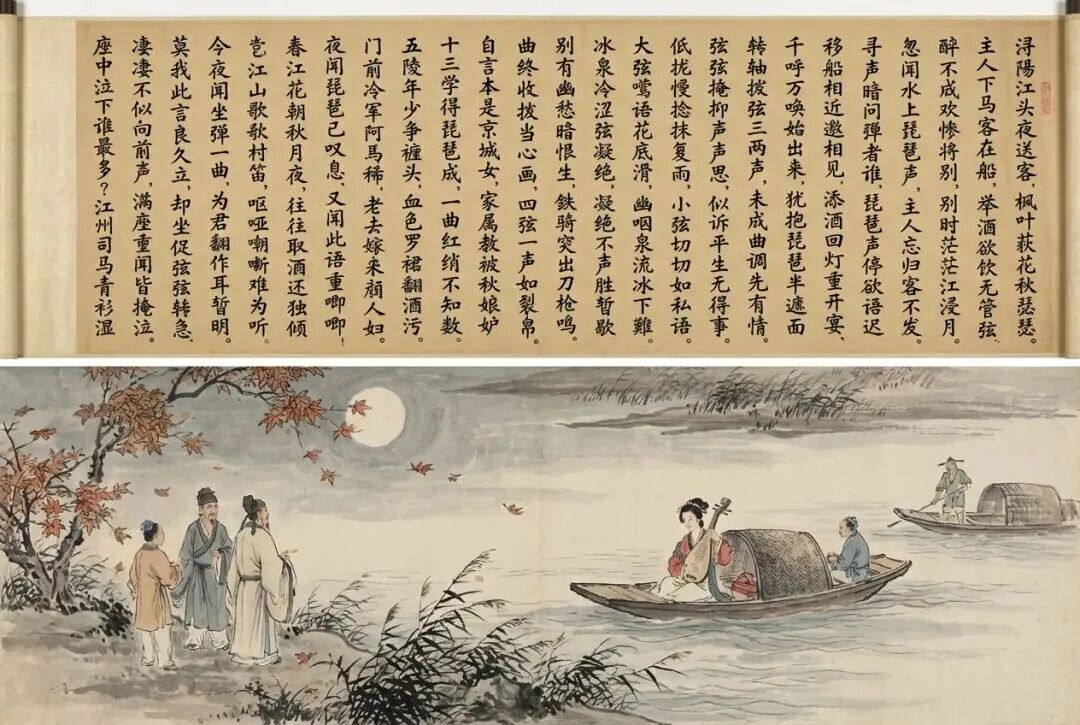 浔陽江头夜送客，枫叶荻花秋瑟瑟。
主人下马客在船，举酒欲饮无管弦、
醉不成欢惨将别，别时茫茫江浸月。
忽闻水上琵琶声，主人忘归客不发。
寻声暗问弹者谁，琵琶声停欲语迟
移船相近邀相见，添酒回灯重开宴、
千呼万唤始出来，犹抱琵琶半遮面
转轴拨弦三两声，未成曲调先有情。
弦弦掩抑声声思，似诉平生无得事。
低拢慢捻抹复雨，小弦切切如私语。
大弦嚆语花底滑，幽咽泉流冰下難。
冰泉冷涩弦凝绝，凝绝不声胜暂歇
别有幽愁暗恨生，鉄骑突出刀枪鸣。
曲终收拨当心画，四弦一声如裂帛。
自言本是京城女，家属教被秋娘妒
十三学得琵琶成，一曲红绡不知数。
五陵年少争缠头，血色罗裙翻酒污。
门前冷军阿馬稀，老去嫁来颜人妇。
夜闻琵琶己叹息、又闻此语重唧唧！
春江花朝秋月夜，往往取酒还独倾
岂江山歌歌村笛，呕哑嘲哳难为听。
今夜闻坐弹一曲，为君翻作耳暂明。
莫我此言良久立，却坐促弦弦转急、
凄凄不似向前声，满座重闻皆掩泣。
座中泣下谁最多？江州司马青衫湿